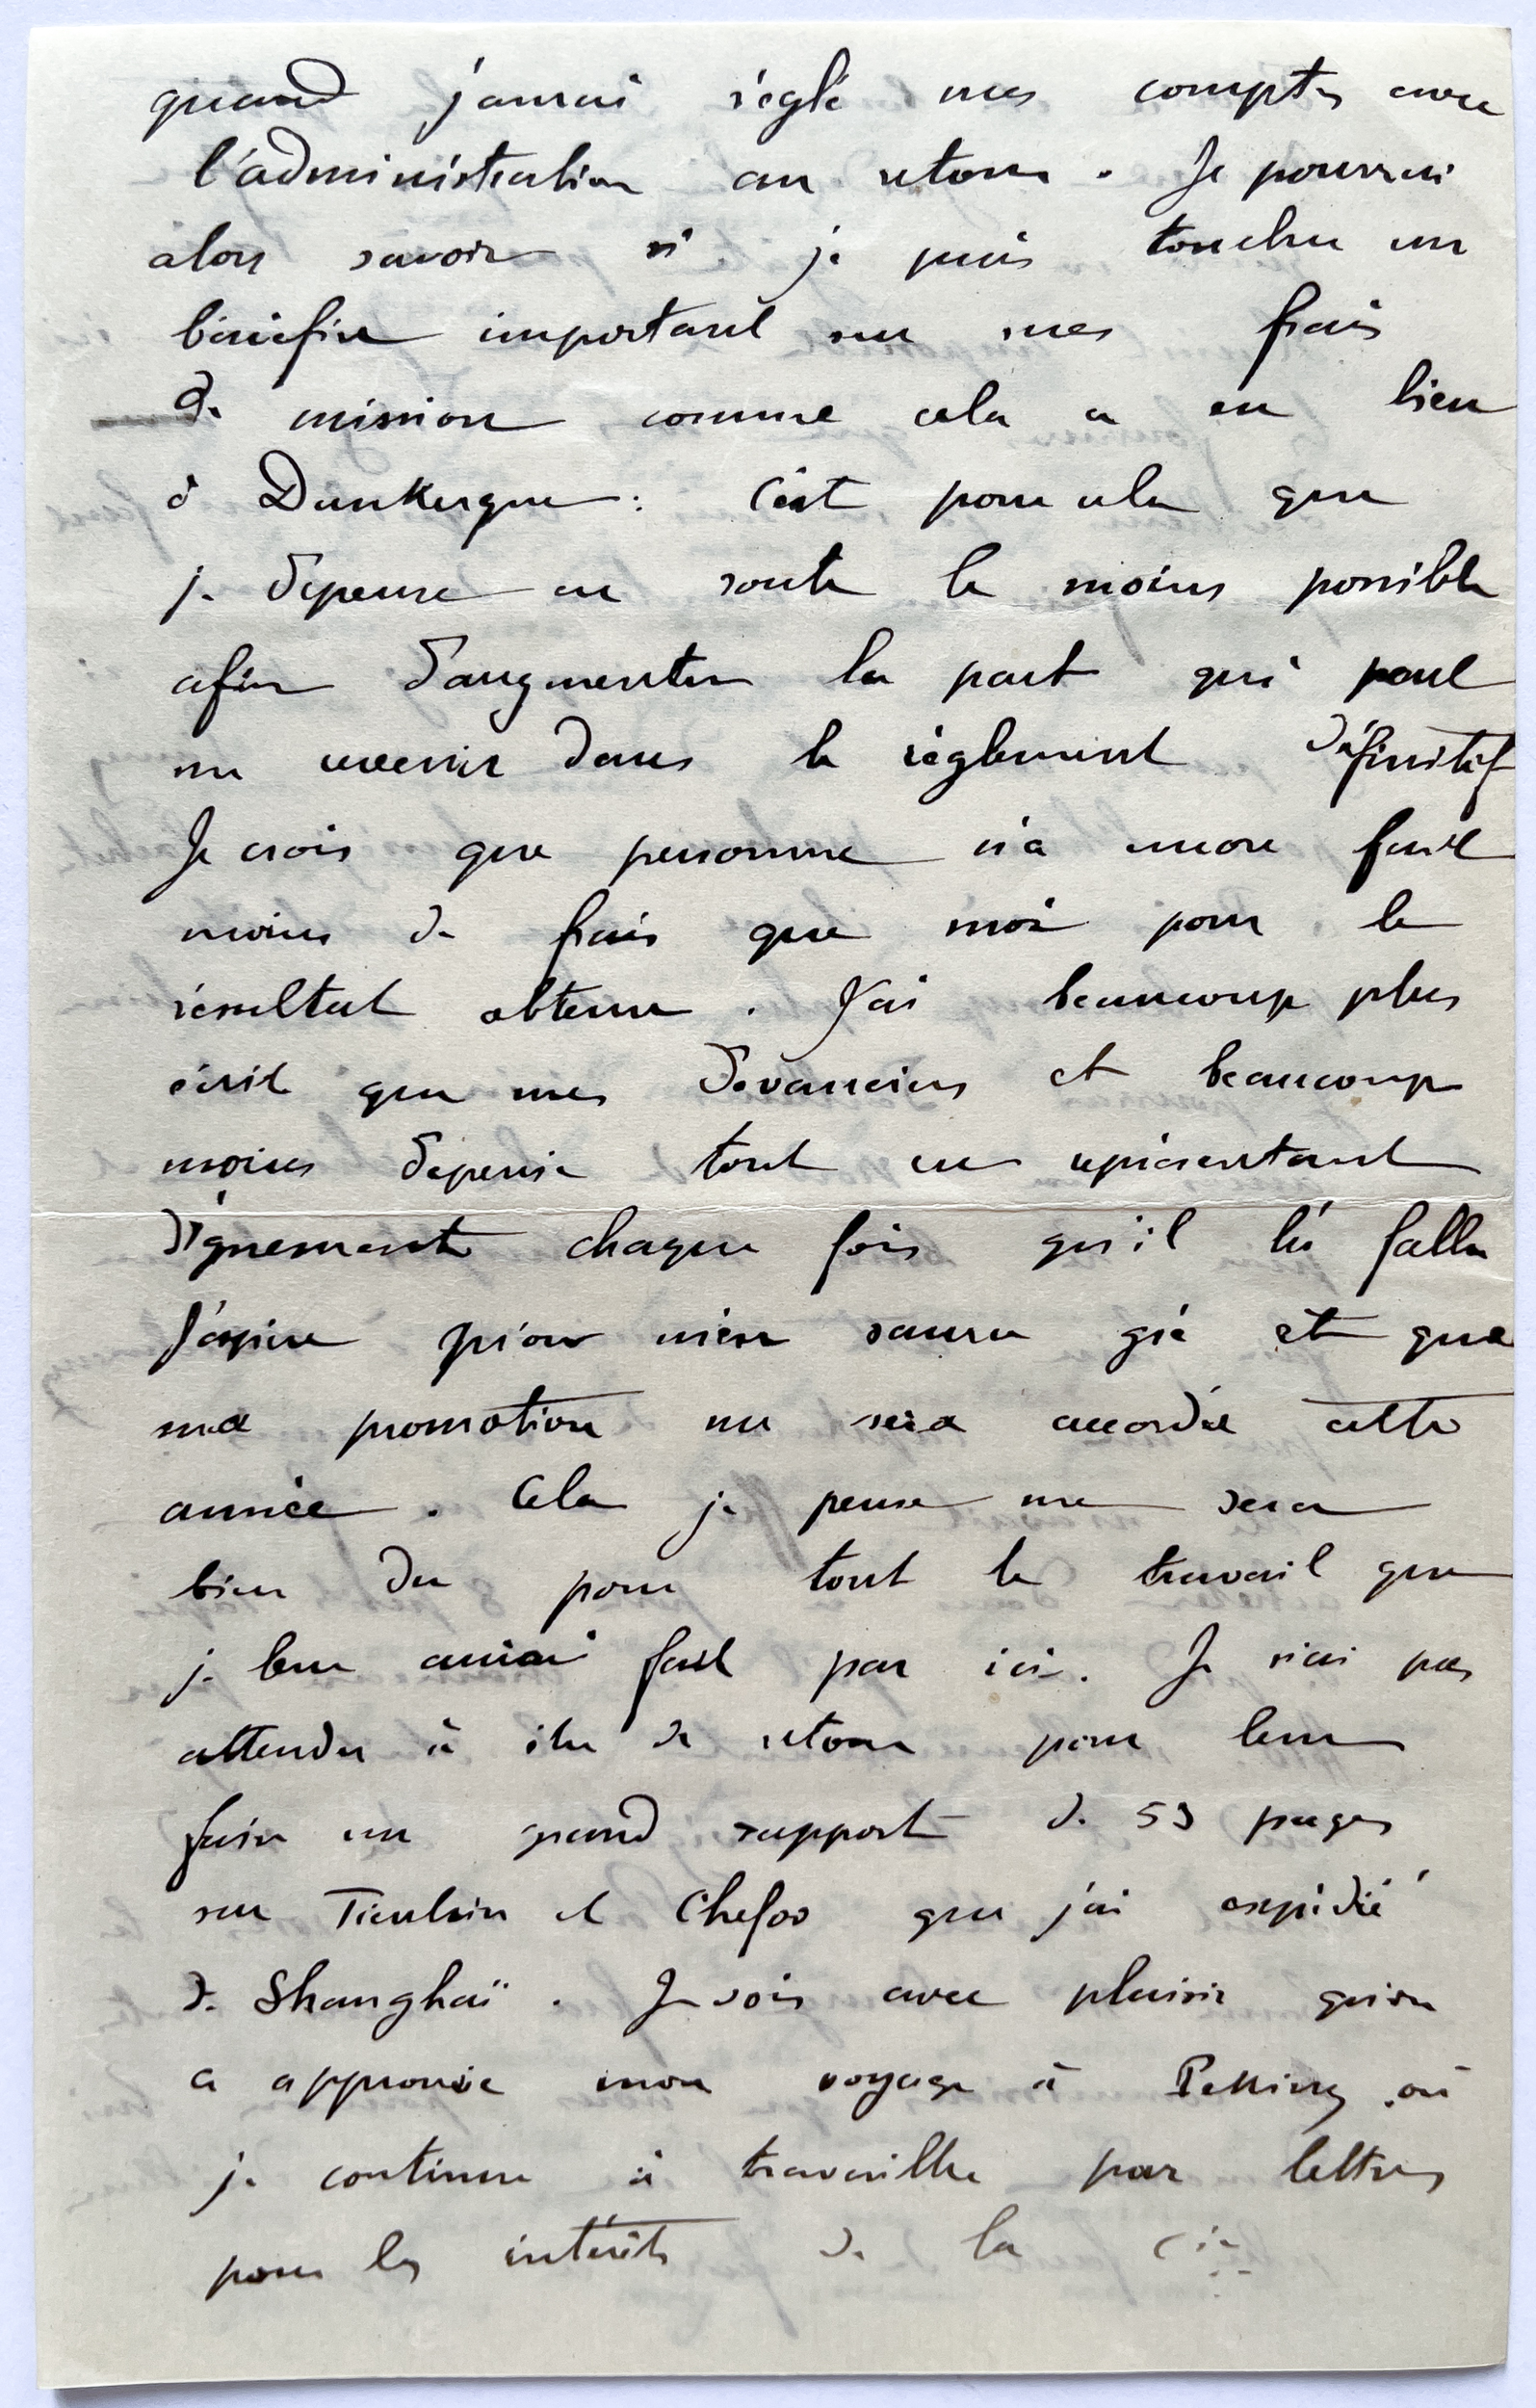 quand j'aurai réglé mes comptes avec
l'administration au retour. Je pourrai
alors savoir si je puis toucher un
bénéfice important sur mes frais
de mission comme cela a eu lieu
à Dunkerque : C'est pour cela que
je dépense en route le moins possible
afin d'augmenter la part qui peut
me revenir dans le règlement définitif
Je crois que personne n'a encore fait
moins de frais que moi pour le
résultat obtenu. J'ai beaucoup plus
écrit que mes devanciers et beaucoup
moins dépensé tout en représentant
dignement chaque fois qu'il l'a fallu
J'espère qu'on m'en saura gré et que
ma promotion me sera accordée cette
année. Cela je pense me sera
bien du pour tout le travail que
je leur aurai fait par ici. Je n'ai pas
attendu à être de retour pour leur
faire un grand rapport de 53 pages
sur Tientsin et Chefoo que j'ai expédié
de Shanghaï. Je vois avec plaisir qu'on
a approuvé mon voyage à Peking où
je continue à travailler par lettres
pour les intérêts de la Cie